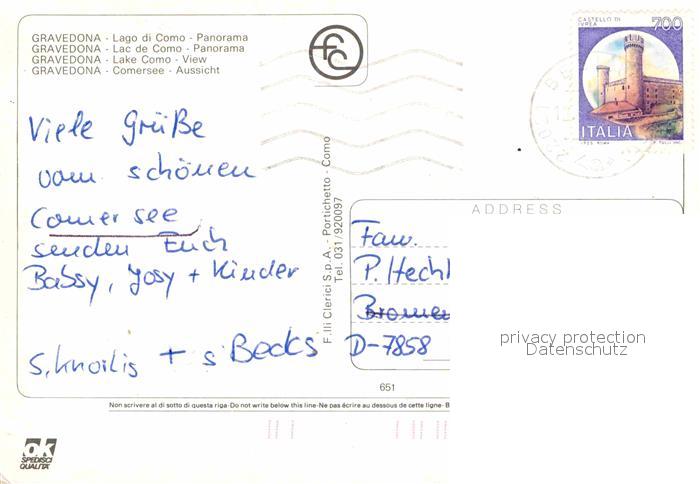 GRAVEDONA - Lago di Como - Panorama
GRAVEDONA - Lac de Como - Panorama
GRAVEDONA - Lake Como - View
GRAVEDONA - Comersee - Aussicht
fc
CASTELLO DI IVREA
700
ITALIA
Viele Grüße
vom schönen
Comer see
senden Euch
Babsy, Josy + Kinder
S. + s' Becks
F.lli Clerici S.p.A. - Portichetto - Como
Tel. 031/920097
ADDRESS
Fam.
P. Hechl
D-7858
privacy protection
Datenschutz
651
Non scrivere al di sotto di questa riga-Do not write below this line-Ne pas écrire au dessous de cette ligne-B
ok
SPEDISCI
QUALITÀ